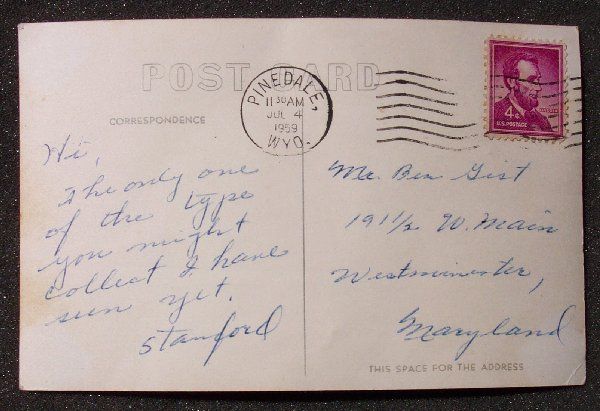 POST CARD
CORRESPONDENCE
PINEDALE,
11 30 AM
JUL 4
1959
WYO.
4¢
U.S. POSTAGE
Hi,
The only one
of the type
you might
collect I have
seen yet.
Stanford
Mr. Ben Gist
191 1/2 W. Main
Westminester,
Maryland
THIS SPACE FOR THE ADDRESS